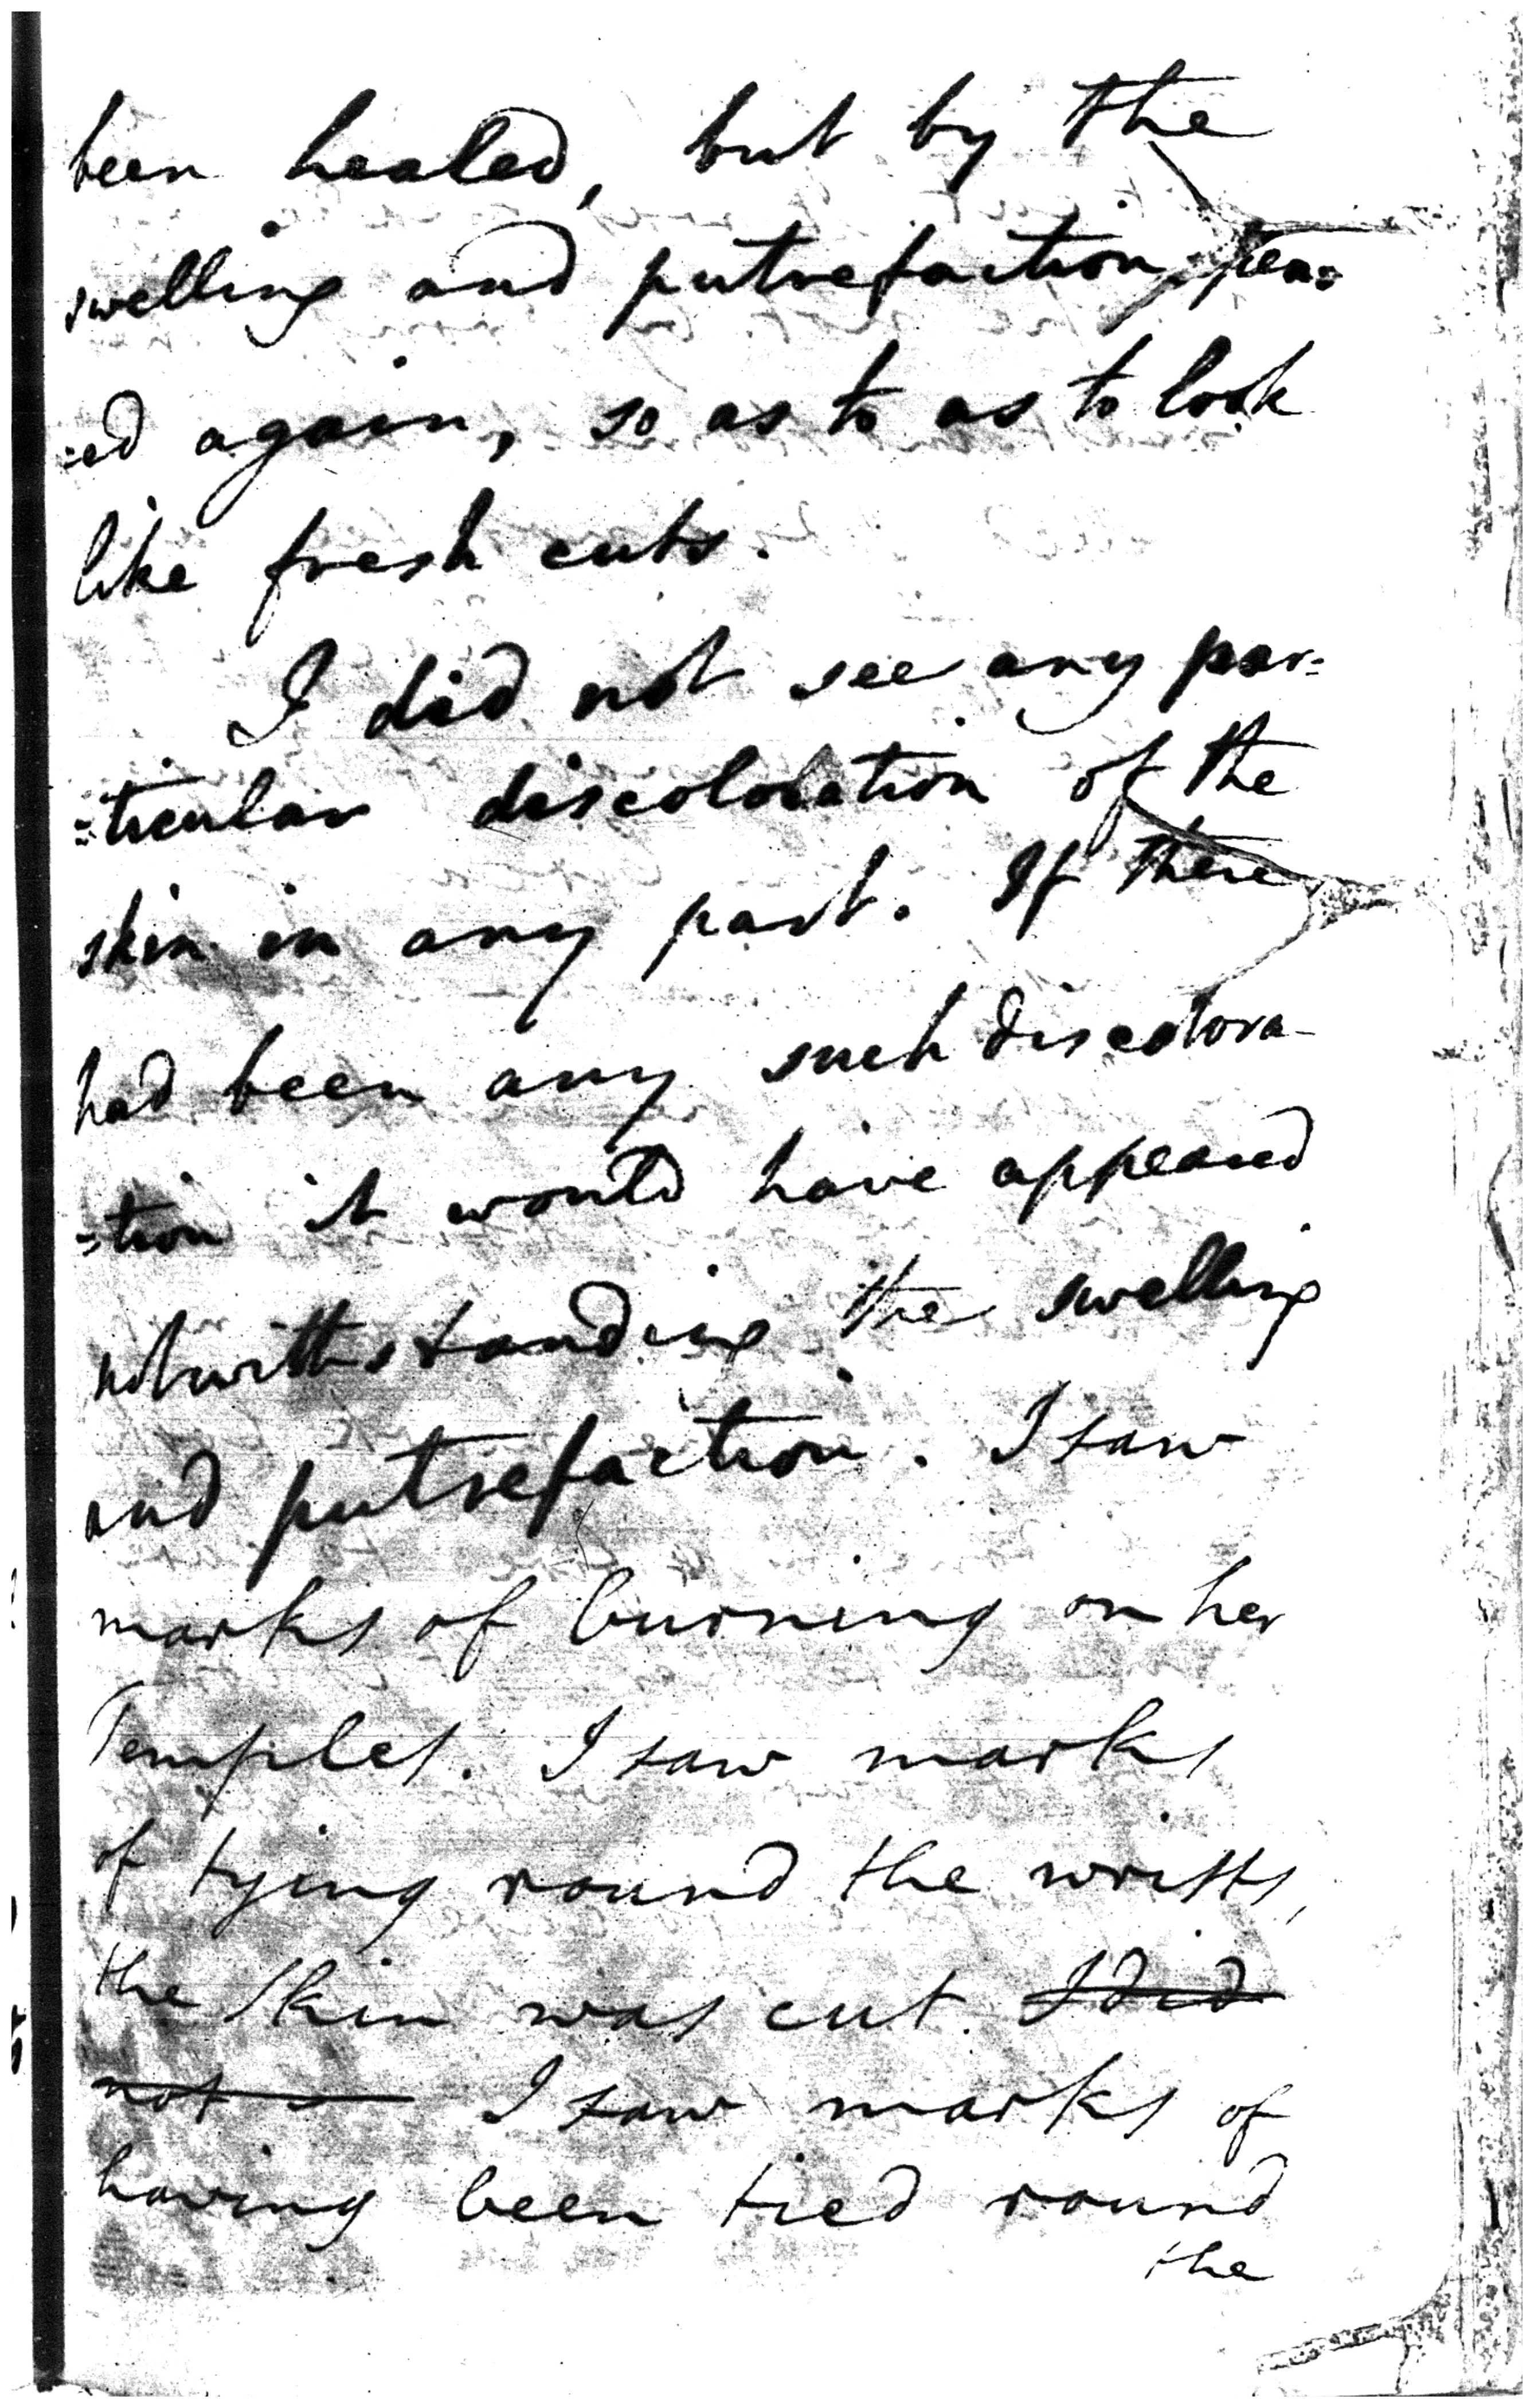 been healed, but by the
swelling and putrefaction
=ed again, so as to as to look
like fresh cuts.
I did not see any par=
=ticular discoloration of the
skin in any part. If there
had been any such discolora-
=tion it would have appeared
notwithstanding the swelling
and putrefaction. I saw
marks of burning on her
Temples. I saw marks
of tying round the wrists,
the skin was cut. I did
not I saw marks of
having been tied round
the